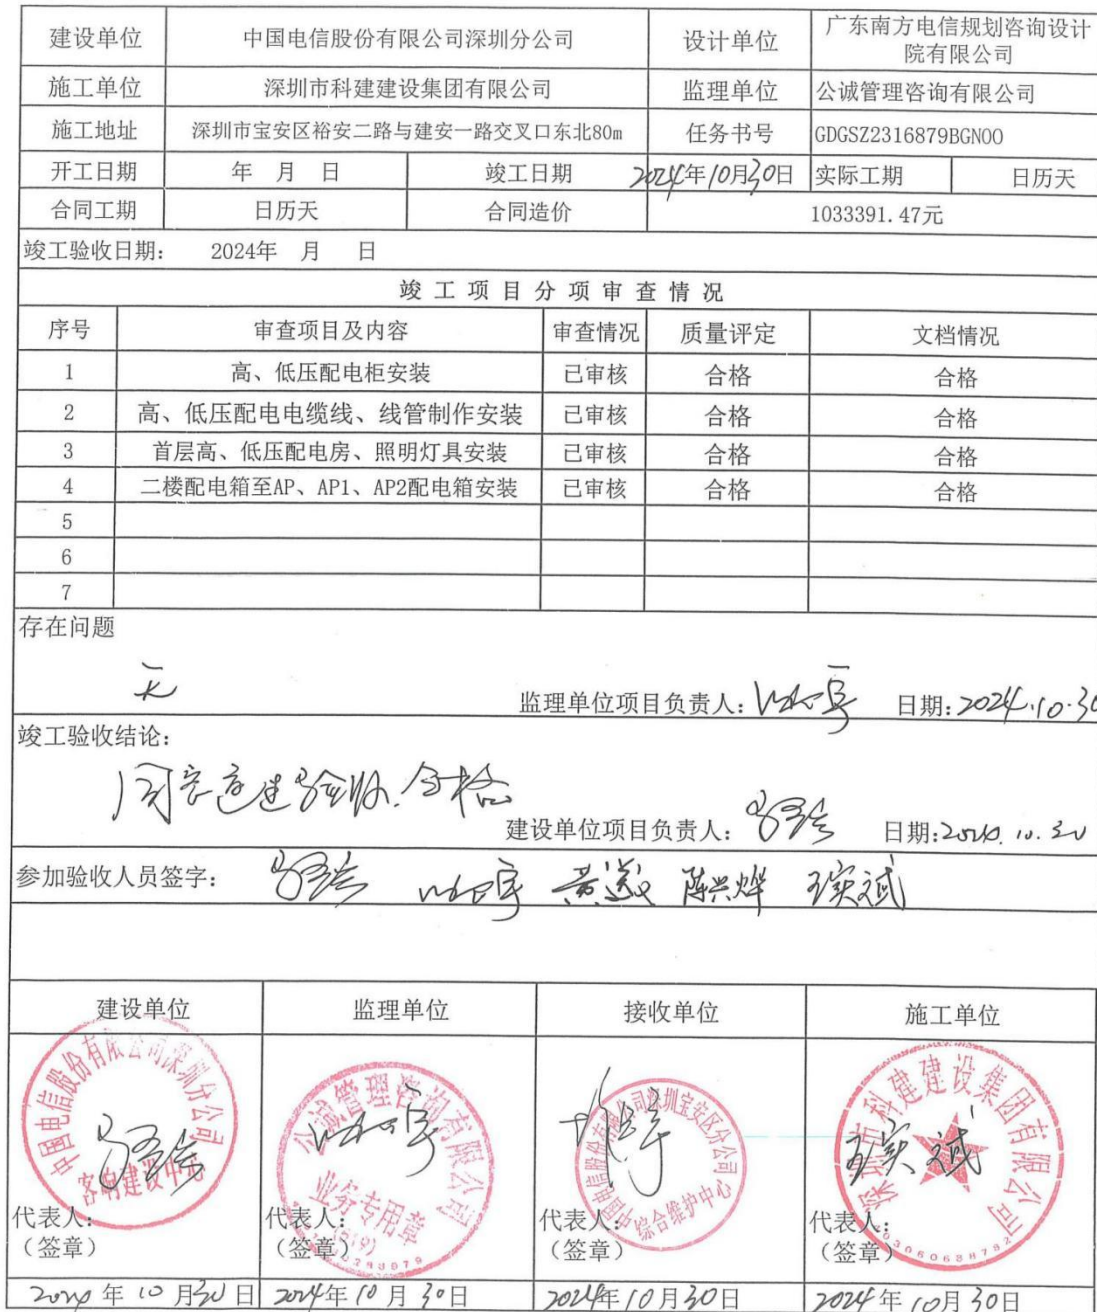 建设单位 中国电信股份有限公司深圳分公司 设计单位 广东南方电信规划咨询设计院有限公司
施工单位 深圳市科建建设集团有限公司 监理单位 公诚管理咨询有限公司
施工地址 深圳市宝安区裕安二路与建安一路交叉口东北80m 任务书号 GDGSZ2316879BGN00
开工日期 年 月 日 竣工日期 2024年10月30日 实际工期 日历天
合同工期 日历天 合同造价 1033391.47元
竣工验收日期: 2024年 月 日
竣工项目分项审查情况
序号 审查项目及内容 审查情况 质量评定 文档情况
1 高、低压配电柜安装 已审核 合格 合格
2 高、低压配电电缆线、线管制作安装 已审核 合格 合格
3 首层高、低压配电房、照明灯具安装 已审核 合格 合格
4 二楼配电箱至AP、AP1、AP2配电箱安装 已审核 合格 合格
5
6
7
存在问题
无
监理单位项目负责人: 日期:2024.10.30
竣工验收结论:
同意通过验收.合格
建设单位项目负责人: 日期:2024.10.30
参加验收人员签字: 陈兴烨
建设单位 监理单位 接收单位 施工单位
中国电信股份有限公司深圳分公司
公诚管理咨询有限公司
业务专用章
中国电信股份有限公司深圳宝安区分公司
综合维护中心
深圳市科建建设集团有限公司
代表人: 代表人: 代表人: 代表人:
（签章） （签章） （签章） （签章）
2024年10月30日 2024年10月30日 2024年10月30日 2024年10月30日